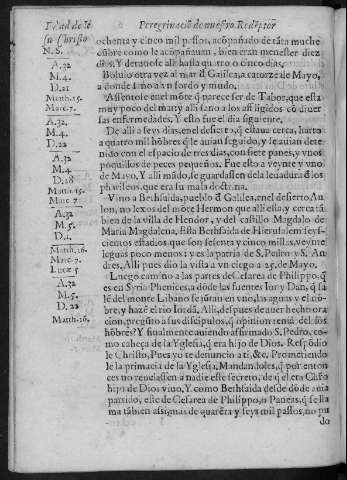 Edad de Ie
su Christo
N.S.
Peregrinació de nuestro Redẽptor
ochenta y cinco mil passos, acõpañado de tãta muche
dũbre como le acõpañauan, bien eran menester diez
dias. Y detauose alli hasta quatro o cinco dias.
A.32
M.4.
D.21
Boluio otra vez al mar d̃ Galilea, a catorze de Mayo,
a donde sano a vn sordo y mudo.
Matth.15.
Marc.7.
Assentose en el mõte q̃ parece ser de Tabor, que esta
muy poco del mar y alli sano a los afligidos cõ diuer
sas enfermedades, Y esto fue el dia siguiente.
A.32.
M.4.
D.22
De alli a seys dias, en el desierto, q̃ estaua cerca, harto
a quatro mil hõbres q̃ le auian seguido, y se auian dete
nido con el espacio de tres dias, con siete panes, y vnos
poquillos de peces pequeños. Fue esto a veynte y vno
de Mayo, Y alli mãdo, se guardassen de la leuadura d̃ los
phariseos, que era su mala doctrina.
A.32
M.4.
D.28
Matth.15.
Marc.7.
Vino a Bethsayda, pueblo d̃ Galilea, en el desierto, Au
lon, no lexos del mõte Hermon que alli esta, y cerca tã
bien de la villa de Hendor, y del castillo Magdalo de
Maria Magdalena, Esta Bethsaida de Hierusalem seys
cientos estadios, que son setenta y cinco millas, veynte
leguas poco menos: y es la patria de S. Pedro y S. An
dres, Alli pues dio la vista a vn ciego a 25. de Mayo.
A.32
M.5.
D.1.
Matth.16.
Marc.7.
Lucæ.5
Luego camino a las partes de Cesarea de Philippo, q̃
es en Syria Phenices, a dõde las fuentes Ior y Dan, q̃ sa
lẽ del monte Libano se jũtan en vno, las aguas y el nõ-
bre, y hazẽ el rio Iordã, Alli, despues de auer hecho ora
cion, pregũto a sus discipulos, q̃ opinion teniã del los
hõbres? Y finalmente auiendo afirmado S. Pedro, co-
mo cabeça de la Yglesia, q̃ era hijo de Dios. Respõdio
le Christo, Pues yo te denuncio a ti, &c. Prometiendo
le la primacia de la Yglesia, Mandandoles, q̃ por enton
ces no reuelassen a nadie este secreto, de q̃ el era Christo
hijo de Dios viuo, Y como Bethsaida desde dõde auia
partido, este de Cesarea de Philippo, o Paneas, q̃ se lla
ma tãbien assi, mas de quarẽta y seys mil passos, no pu
A.32
M.5.
D.22
Matth.16.
do